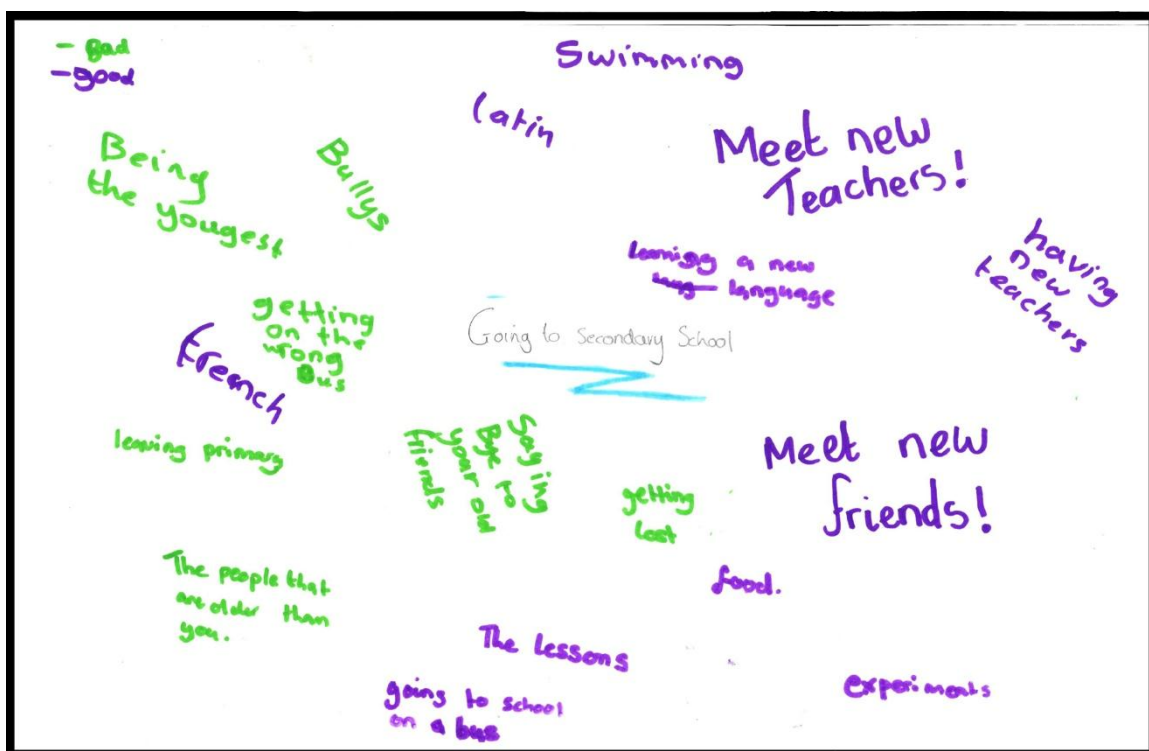 - Bad
- good
Swimming
Latin
Meet new
Teachers!
Being
the yougest
Bullys
learning a new
language
having
new
teachers
getting
on the
wrong
Bus
freanch
Going to Secondary School
leaving primary
Saying
Bye to
your old
friends
getting
lost
Meet new
friends!
The people that
are older than
you.
food.
The lessons
going to school
on a bus
experiments